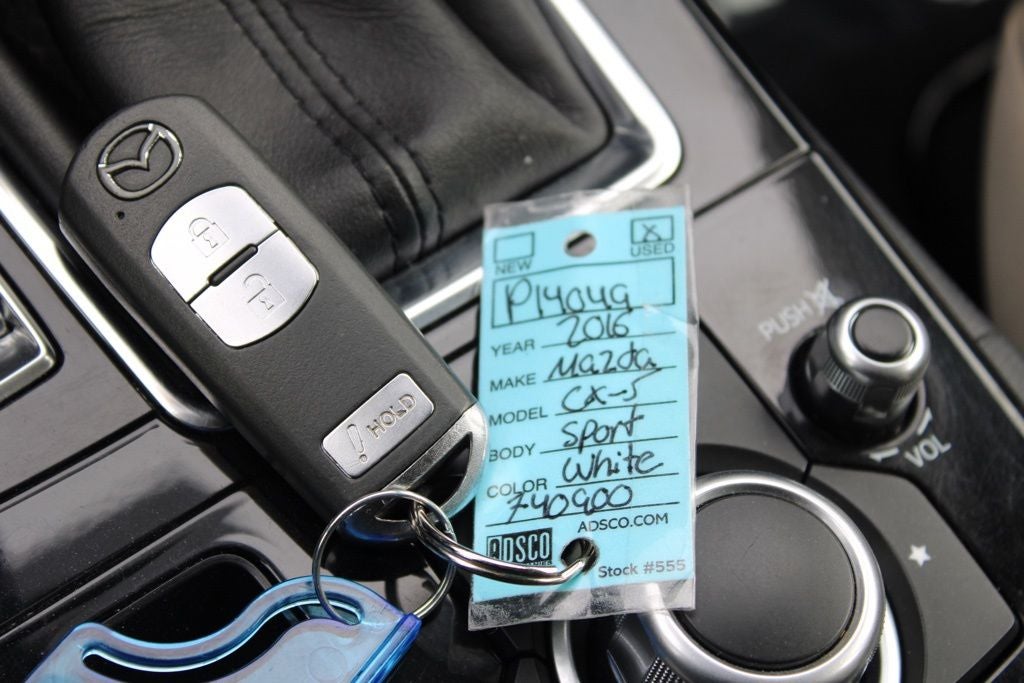 NEW
USED
X
P14049
YEAR 2016
MAKE Mazda
MODEL CX-5
BODY Sport
COLOR White
740900
ADSCO.COM
ADSCO
Stock #555
HOLD
PUSH
VOL